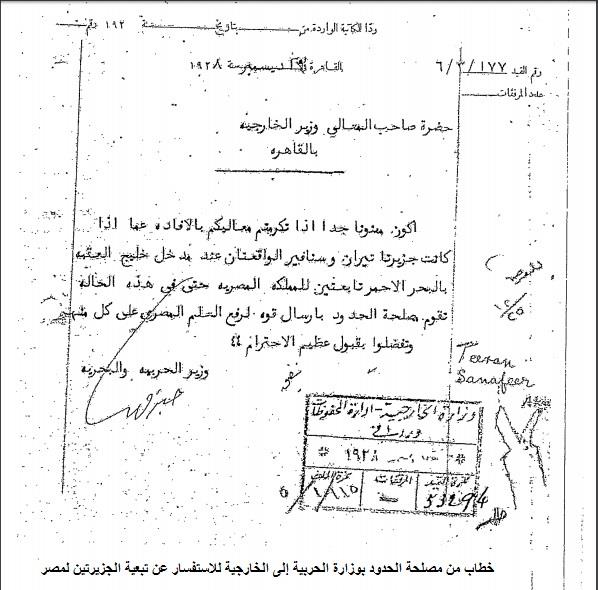 ردا للكاتبة الواردة من بتاريخ سنة ١٩٢ رقم
القاهرة في ديسمبر سنة ١٩٢٨
رقم القيد ٦/٣/١٧٧
عدد المرفقات
حضرة صاحب المعالي وزير الخارجيه
بالقاهره
اكون ممنونا جدا اذا تكرمتم معاليكم بالافاده عما اذا
كانت جزيرتا تيران وسنافير الواقعتان عند مدخل خليج العقبه
بالبحر الاحمر تابعتين للمملكه المصريه حتى في هذه الحاله
تقوم مصلحة الحدود بارسال قوه لرفع العلم المصري على كل منهم
وتفضلوا بقبول عظيم الاحترام ؛؛
وزير الحربيه والبحريه
Teeran
Sanafeer
وزارة الخارجية - ادارة المحفوظات
١٩٢٨
نمرة القيد المرفقات نمرة الملف
خطاب من مصلحة الحدود بوزارة الحربية إلى الخارجية للاستفسار عن تبعية الجزيرتين لمصر